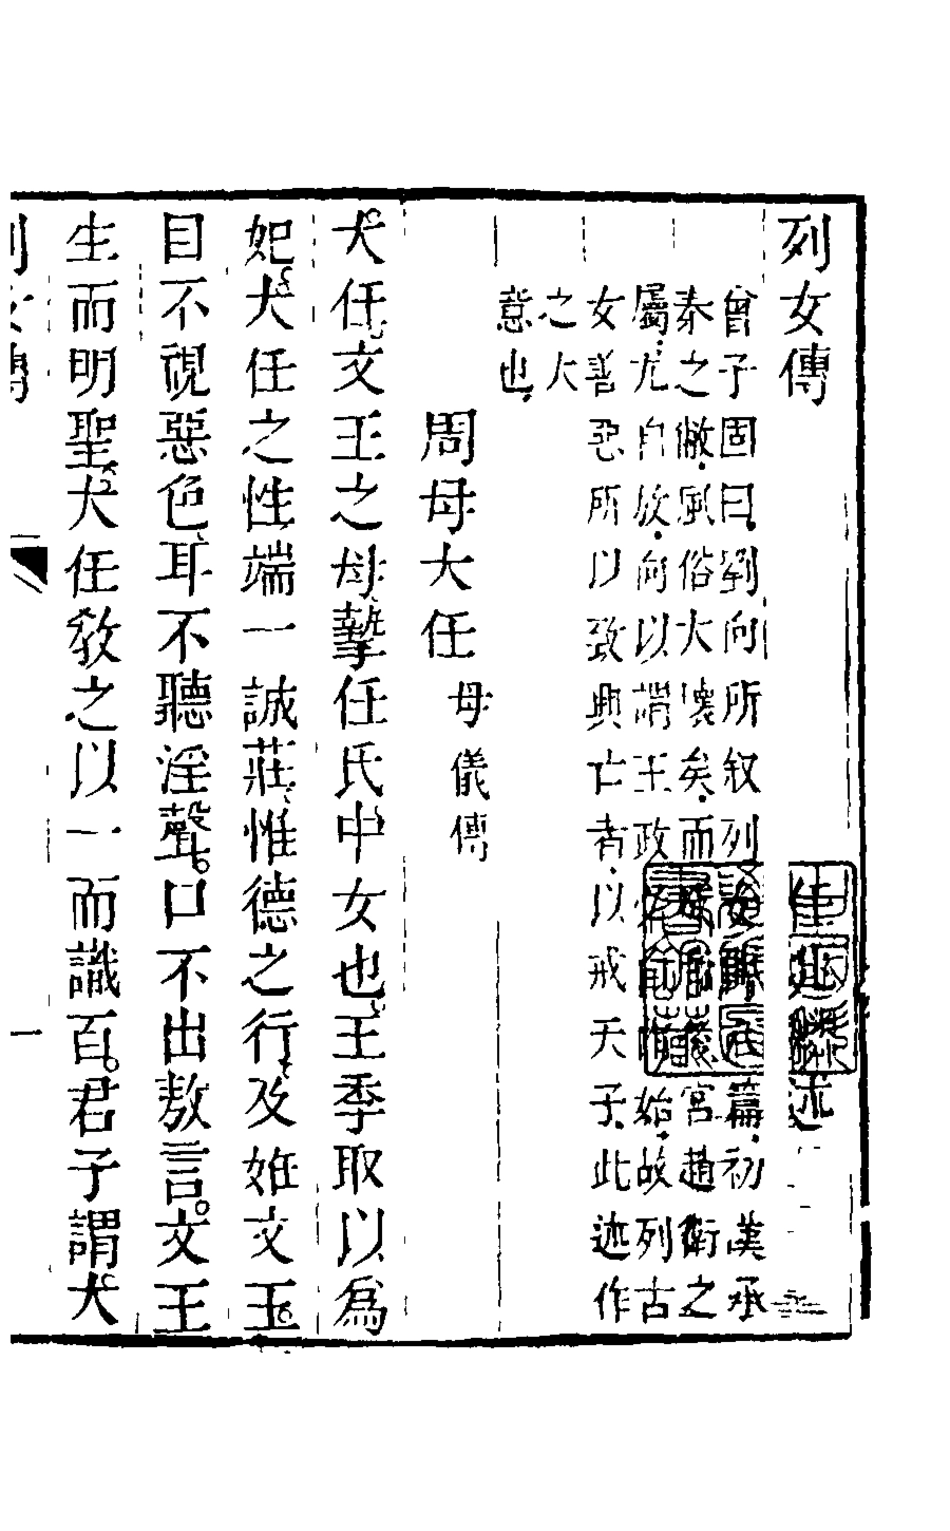 列女傳 述
曾子固曰劉向所叙列女篇初漢承
秦之敝風俗大壞矣而宮趙衛之
屬尤自放向以謂王政始故列古
女善惡所以致興亡者以戒天子此述作
之大
意也
周母大任 母儀傳
大任文王之母摯任氏中女也王季取以爲
妃大任之性端一誠莊惟德之行及姙文王
目不視惡色耳不聽淫聲口不出敖言文王
生而明聖大任教之以一而識百君子謂大
列女傳 一